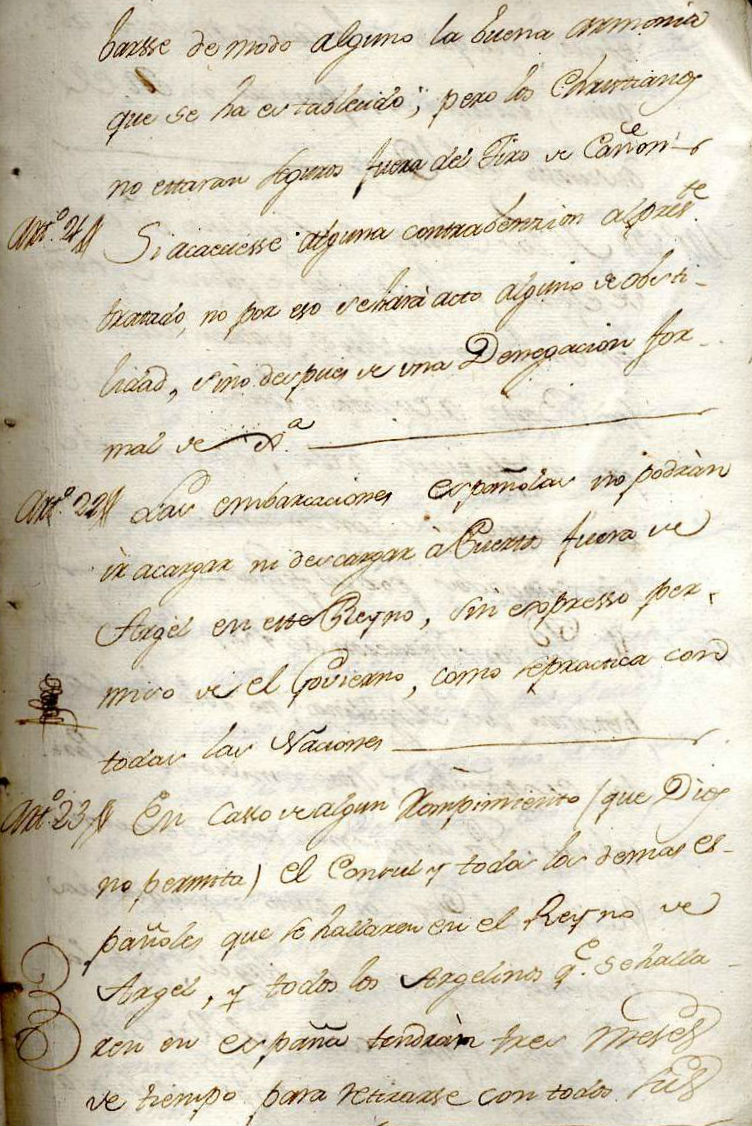 barsse de modo alguno la buena armonia
que se ha establecido; pero los Christianos
no estaran seguros fuera del Tiro de Cañon
Art.º 21 Si acaeciesse alguna contrabenzion al pres.te
tratado, no por eso se hará acto alguno de obsti-
lidad, sino despues de una Denegacion for-
mal de
Art.º 22 Las embarcaciones españolas no podràn
ir acargar ni descargar à Puertos fuera de
Argel en este Reyno, sin expresso per-
miso de el Govierno, como se practica con
todas las Naciones
Art.º 23 En Casso de algun Rompimiento (que Dios
no permita) el Consul y todos los demas es-
pañoles que se hallaren en el Reyno de
Argel, y todos los Argelinos q.e se halla-
ren en españa tendràn tres meses
de tiempo para retirarse con todos sus